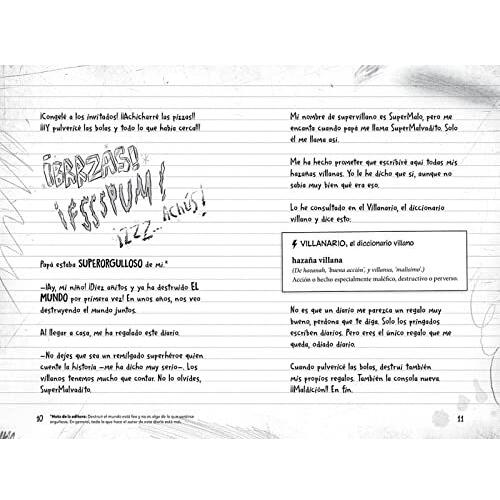 ¡Congelé a los invitados! ¡¡Achicharré las pizzas!!
¡¡¡Y pulvericé las bolas y todo lo que había cerca!!!
¡BRRZAS!
¡FSSSPUM!
¡ZZZ... ACHÚS!
Papá estaba SUPERORGULLOSO de mí.*
—¡Ay, mi niño! ¡Diez añitos y ya ha destruido EL
MUNDO por primera vez! En unos años, nos veo
destruyendo el mundo juntos.
Al llegar a casa, me ha regalado este diario.
—No dejes que sea un remilgado superhéroe quien
cuente la historia —me ha dicho muy serio—. Los
villanos tenemos mucho que contar. No lo olvides,
SuperMalvadito.
*Nota de la editora: Destruir el mundo está feo y no es algo de lo que sentirse
orgulloso. En general, todo lo que hace el autor de este diario está mal.
10
Mi nombre de supervillano es SuperMalo, pero me
encanta cuando papá me llama SuperMalvadito. Solo
él me llama así.
Me ha hecho prometer que escribiré aquí todas mis
hazañas villanas. Yo le he dicho que sí, aunque no
sabía muy bien qué era eso.
Lo he consultado en el Villanario, el diccionario
villano y dice esto:
VILLANARIO, el diccionario villano
hazaña villana
(De hazanah, 'buena acción', y villanus, 'malísima'.)
Acción o hecho especialmente maléfico, destructivo o perverso.
No es que un diario me parezca un regalo muy
bueno, perdona que te diga. Solo los pringados
escriben diarios. Pero eres el único regalo que me
queda, odiado diario.
Cuando pulvericé las bolas, destruí también
mis propios regalos. También la consola nueva.
¡¡Maldición!! En fin.
11